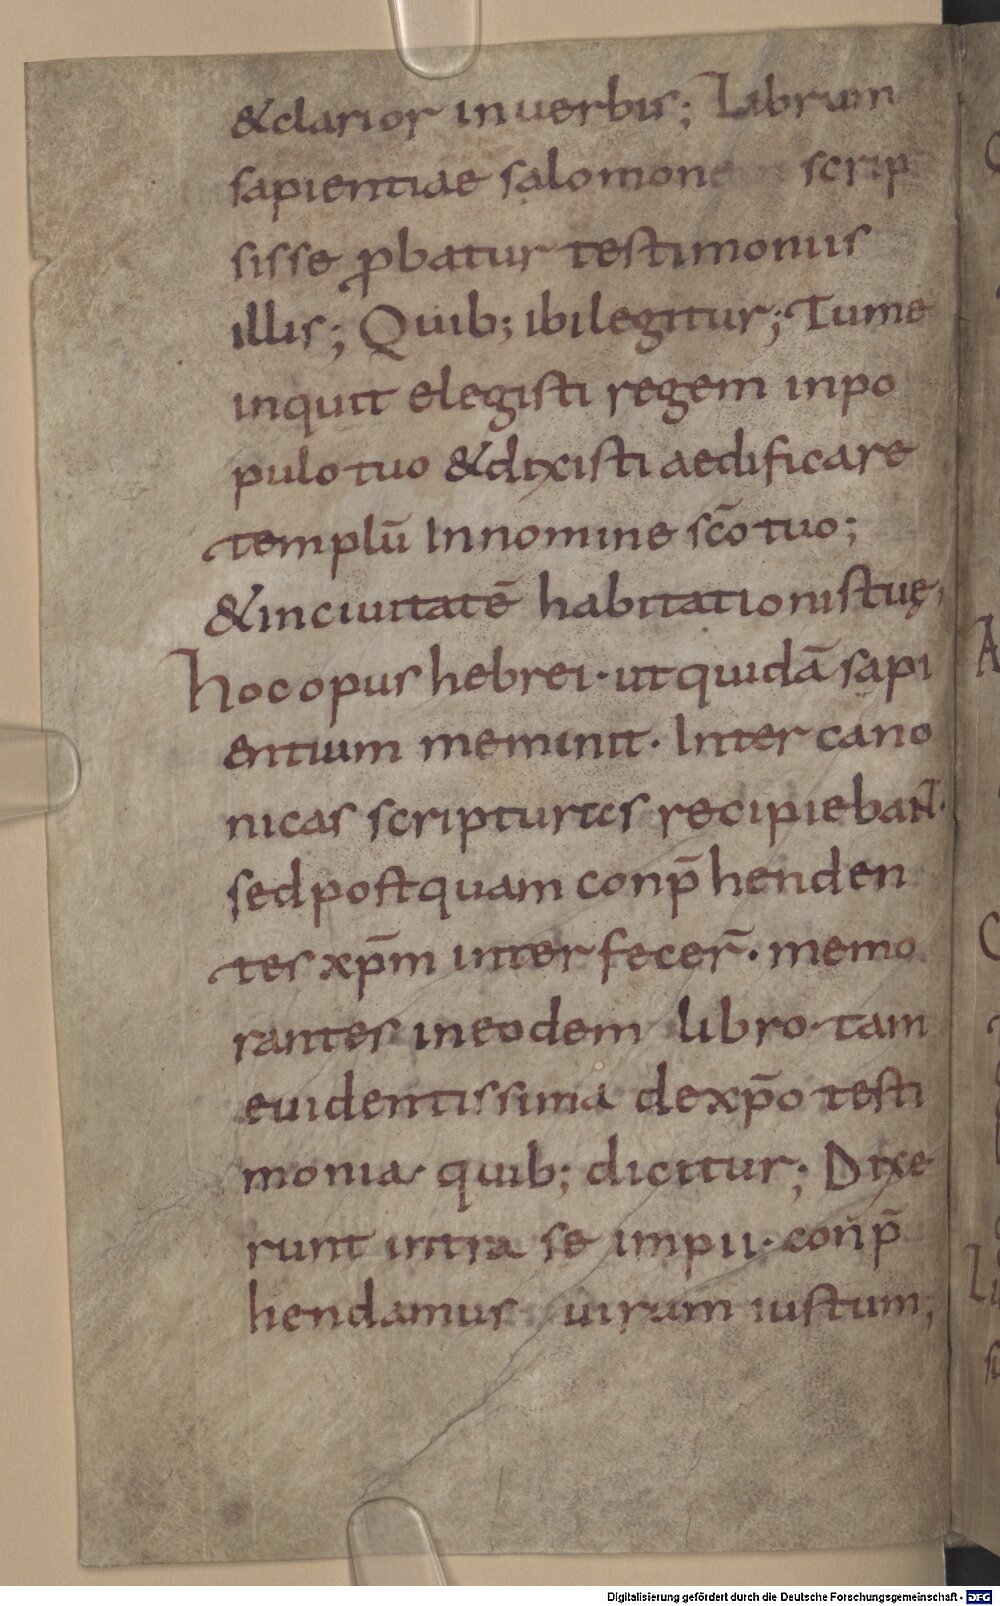 &clarior inuerbis; Librum
sapientiae salomonem scrip
sisse ꝓbatur testimoniis
illis; Quib; ibilegitur; Tume
inquit elegisti regem inpo
pulo tuo &dixisti aedificare
templū Innomine sc̄o tuo;
&inciuitatē habitationistuę;
hoc opus hebrei · ut quidā sapi
entium meminit · Inter cano
nicas scripturas recipiebant·
sed postquam conp̄henden
tes xp̄m interfecer̄ · memo
rantes ineodem libro · tam
euidentissima dexp̄o testi
monia · quib; dicitur; Dixe
runt intra se impii · conp̄
hendamus uirum iustum;
Digitalisierung gefördert durch die Deutsche Forschungsgemeinschaft - DFG